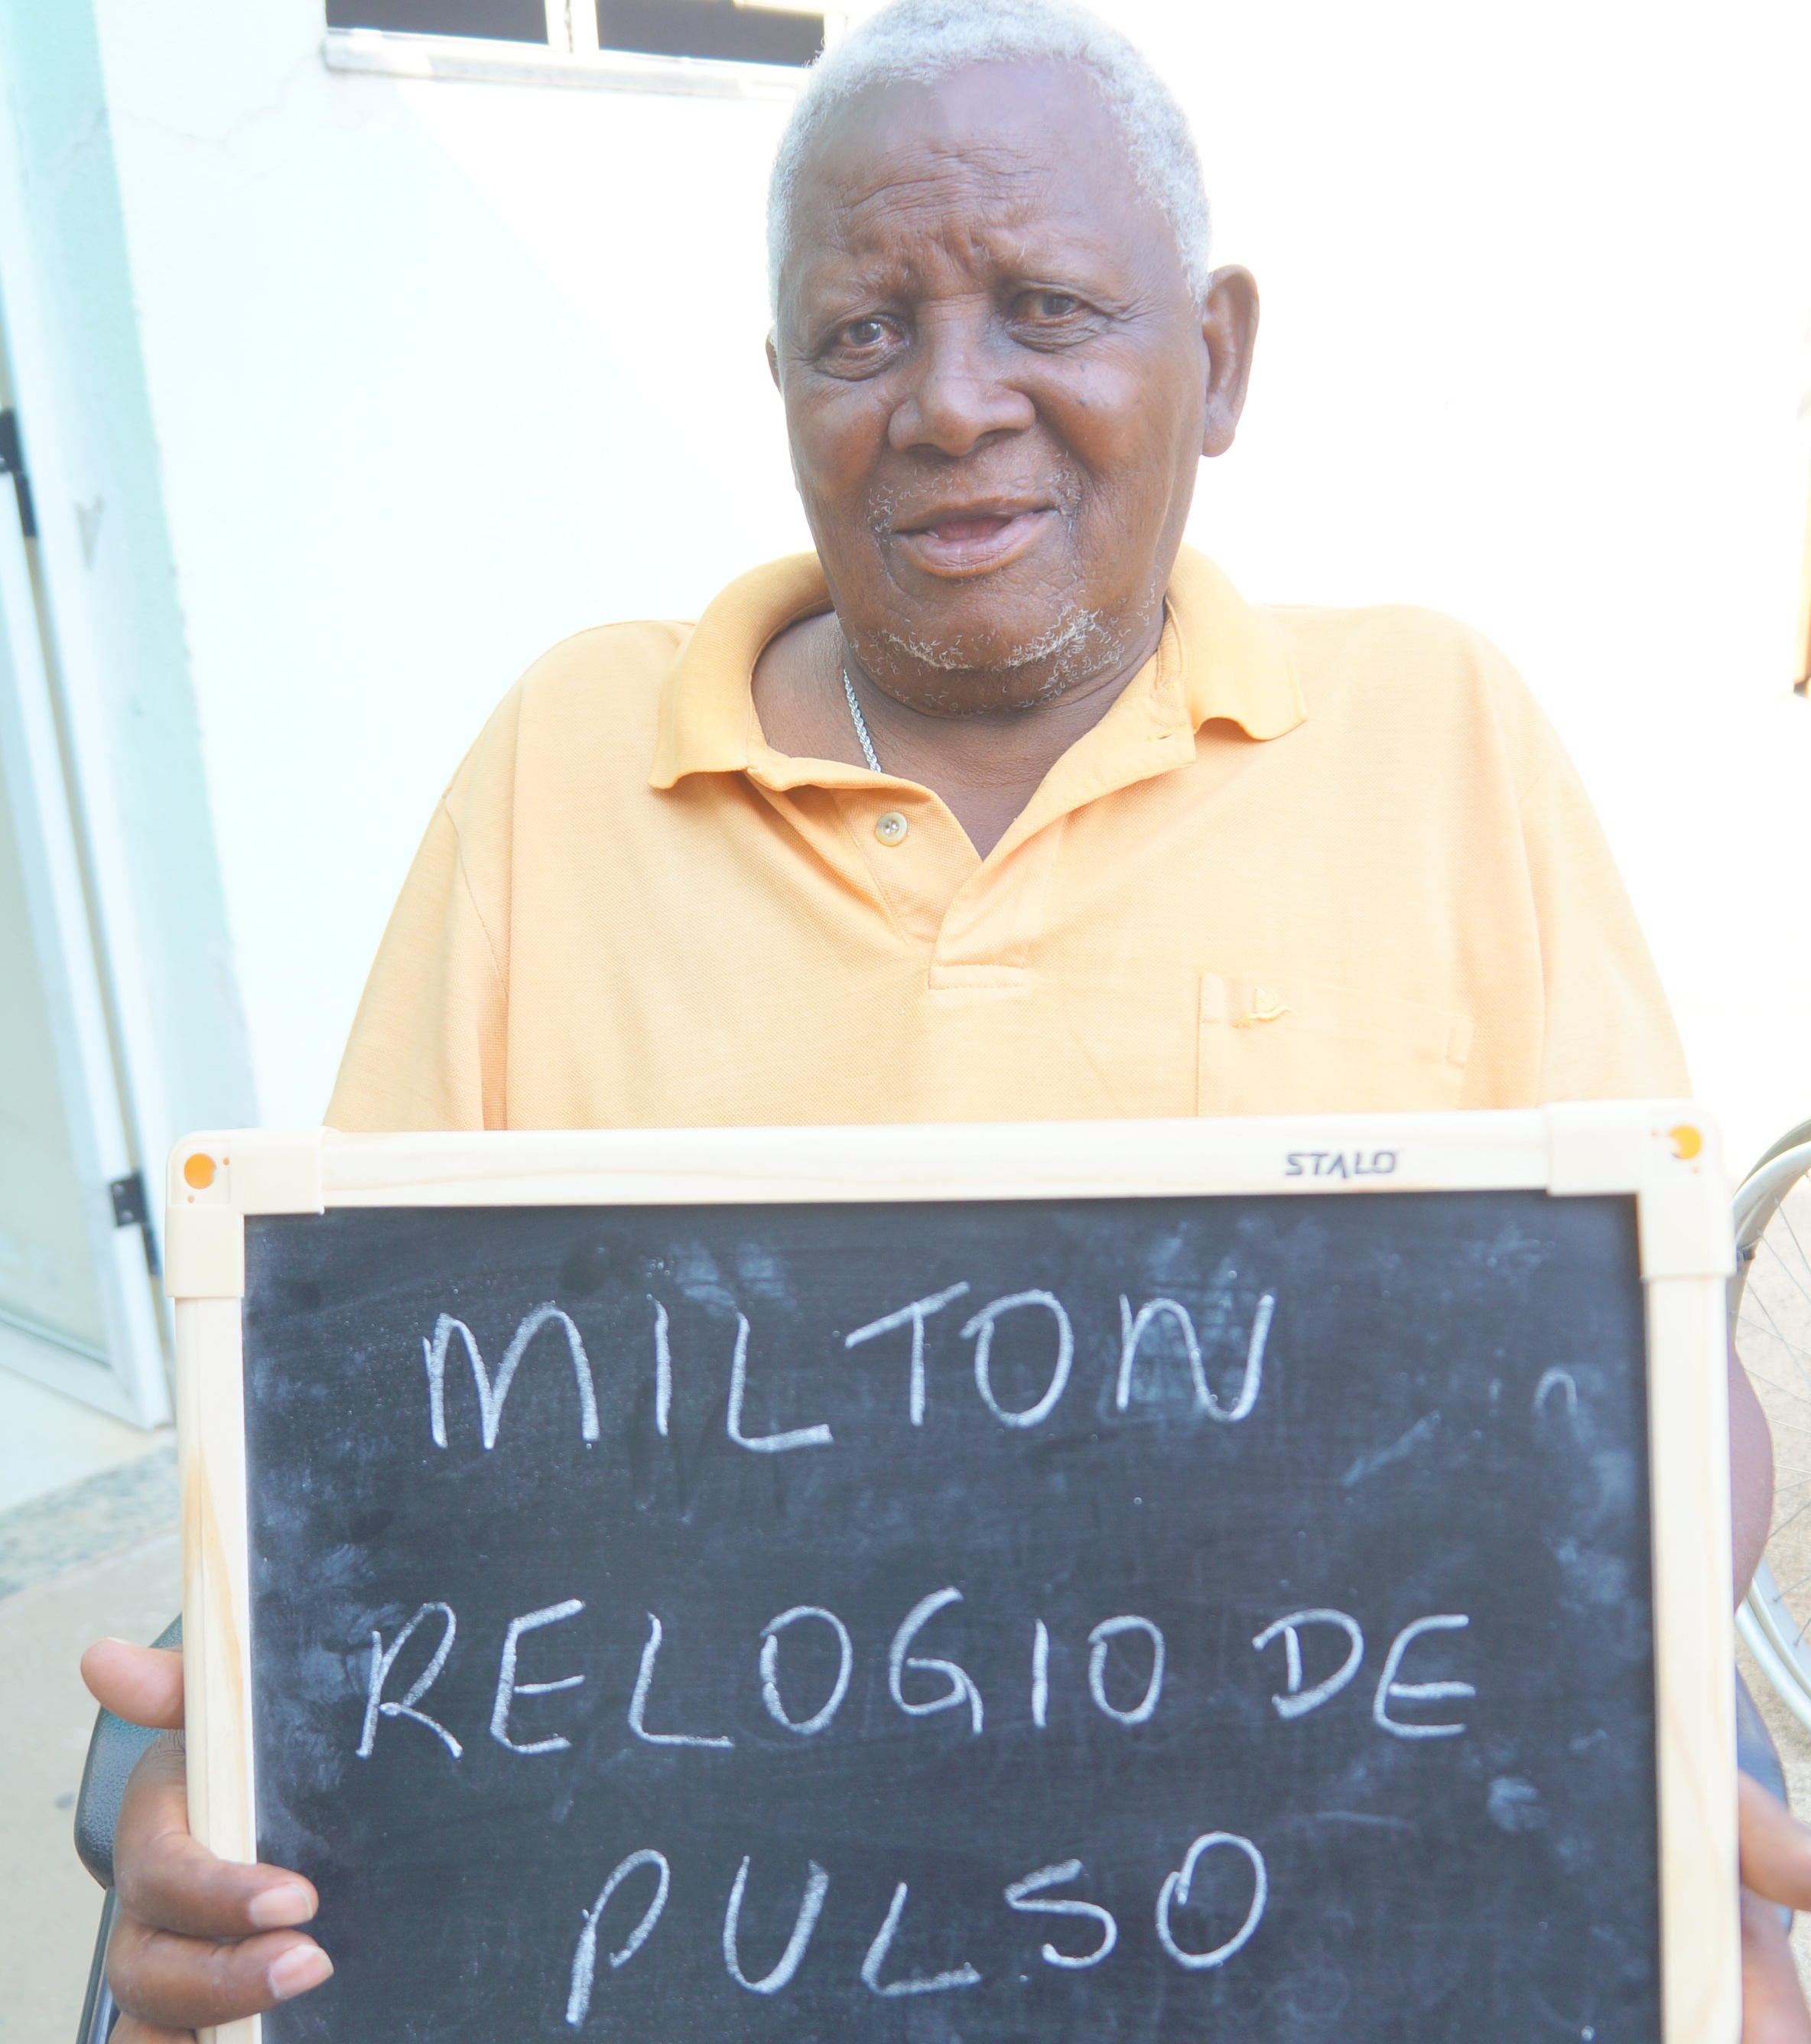 STALO
MILTON
RELOGIO DE
PULSO